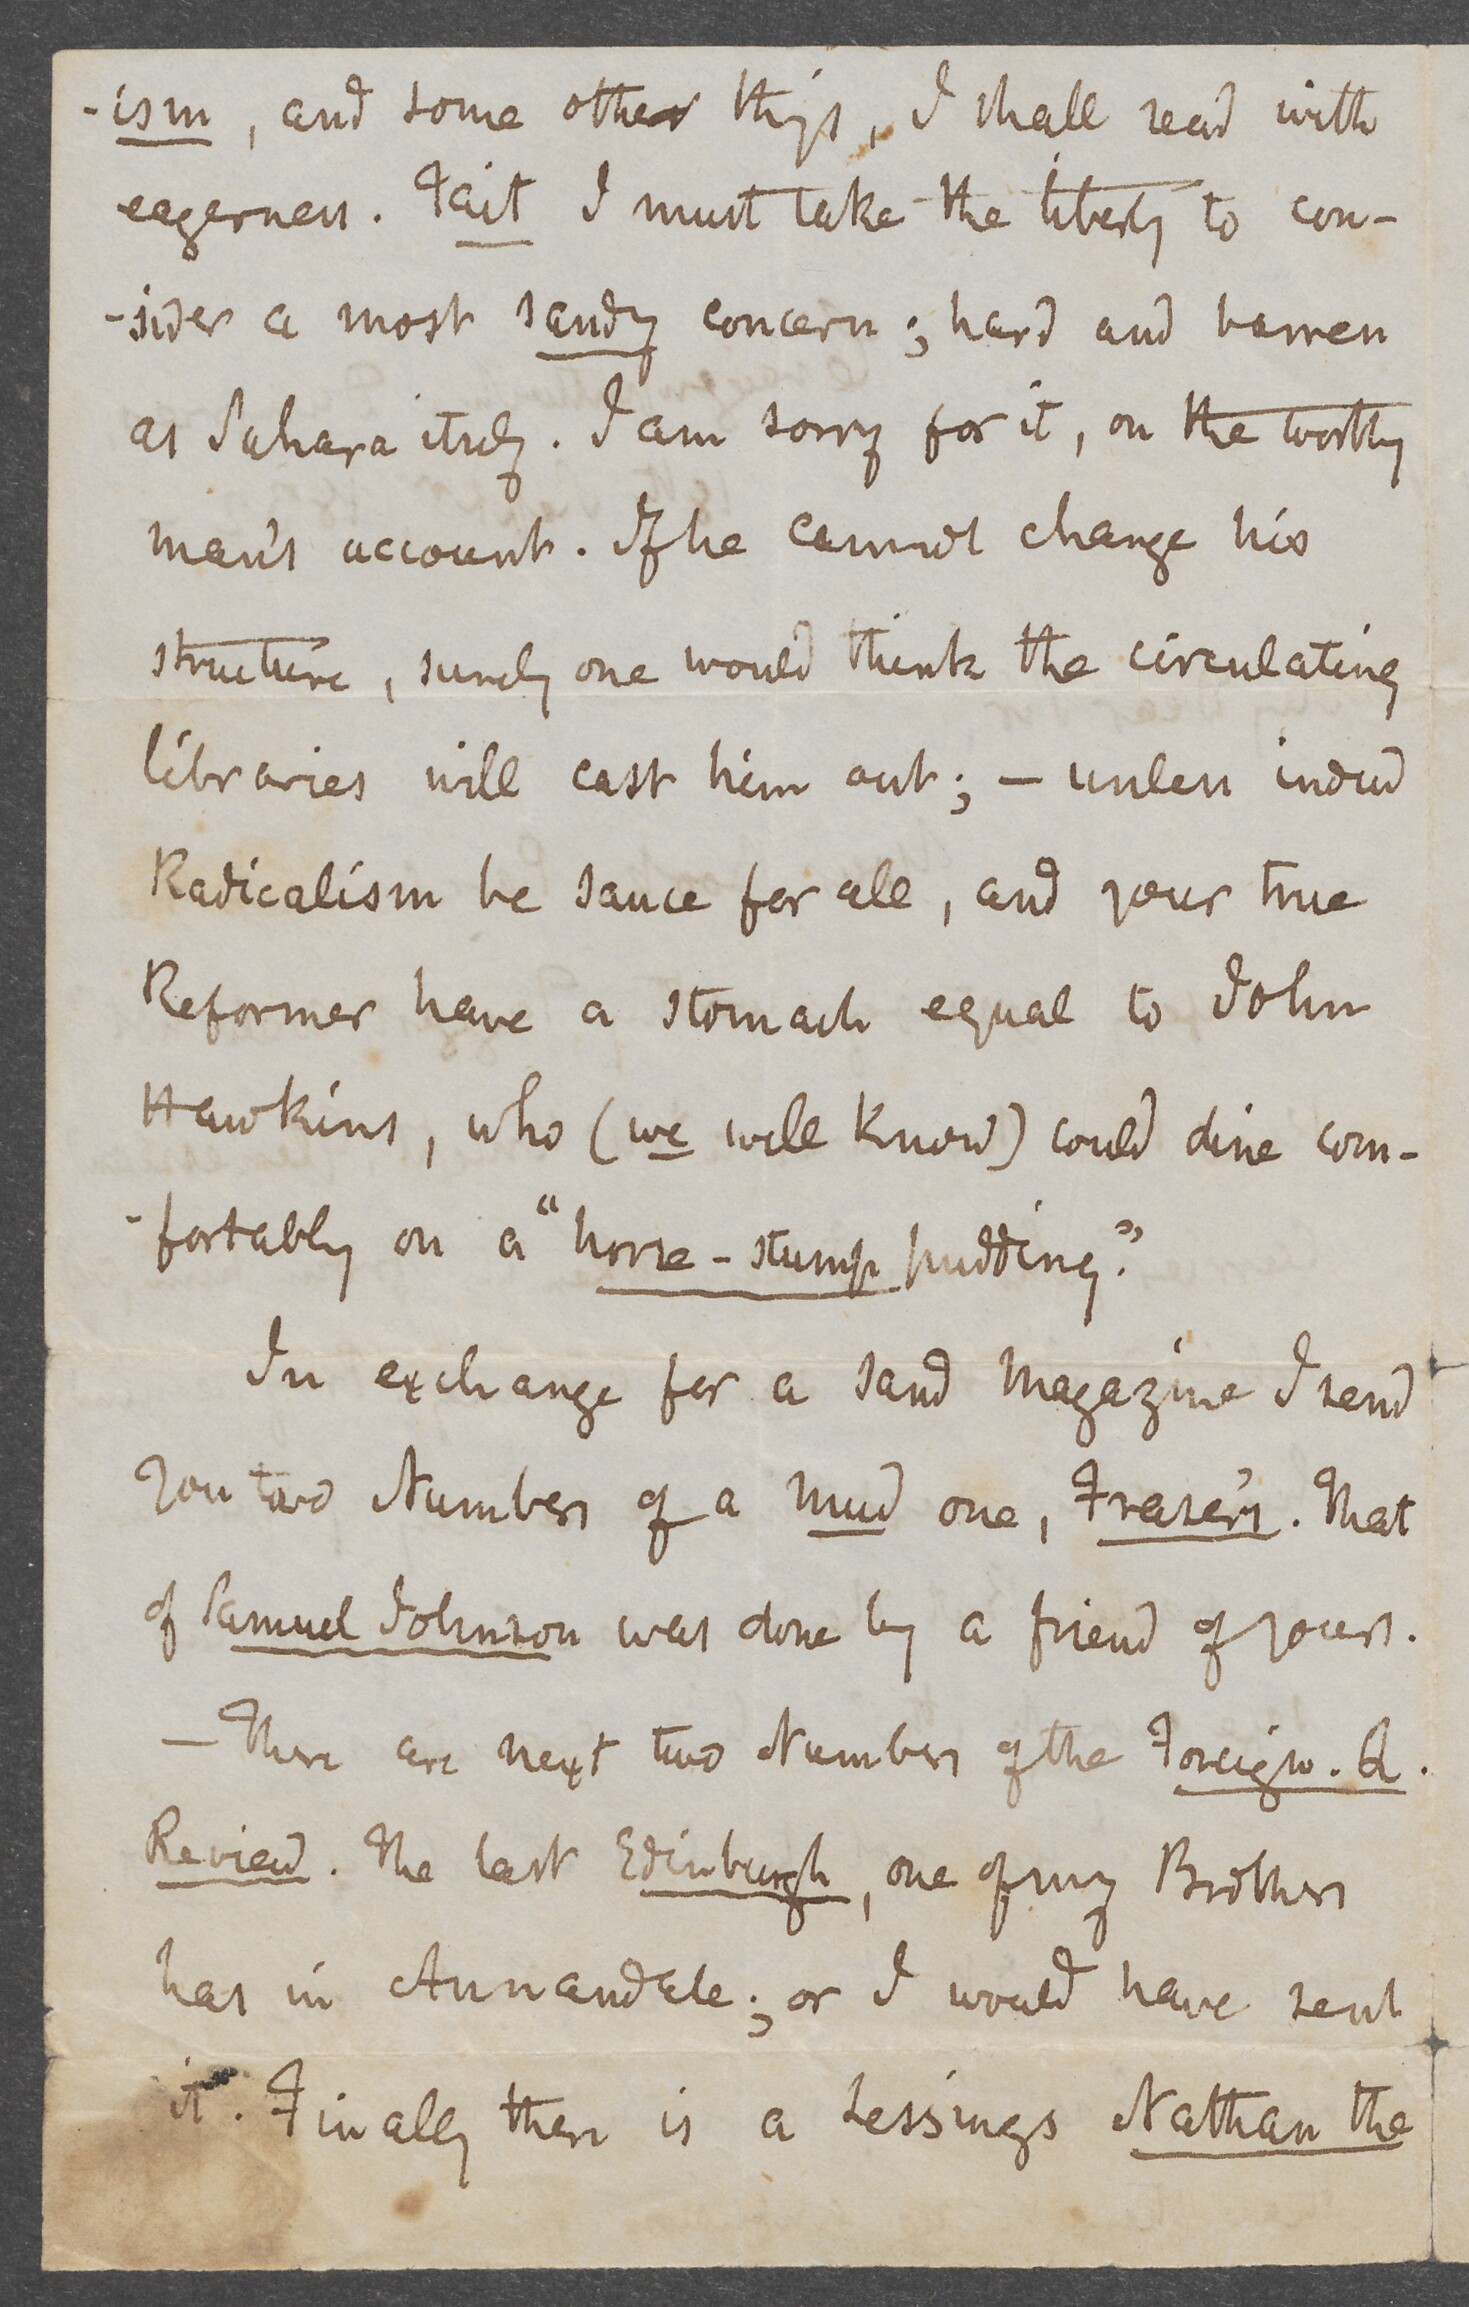 -ism, and some other thigs, I shall read with
eagerness. Tait I must take the liberty to con-
-sider a most sandy concern; hard and barren
as Sahara itself. I am sorry for it, on the worthy
man's account. If he cannot change his
structure, surely one would think the circulating
libraries will cast him out; — unless indeed
Radicalism be sauce for all, and your true
Reformer have a stomach equal to John
Hawkins, who (we well know) could dine com-
-fortably on a "horse-stump pudding."
In exchange for a sand Magazine I send
you two Numbers of a mud one, Fraser's. That
of Samuel Johnson was done by a friend of yours.
— There are next two Numbers of the Foreign. Q.
Review. The last Edinburgh, one of my Brothers
has in Annandale; or I would have sent
it. Finally there is a Lessings Nathan the